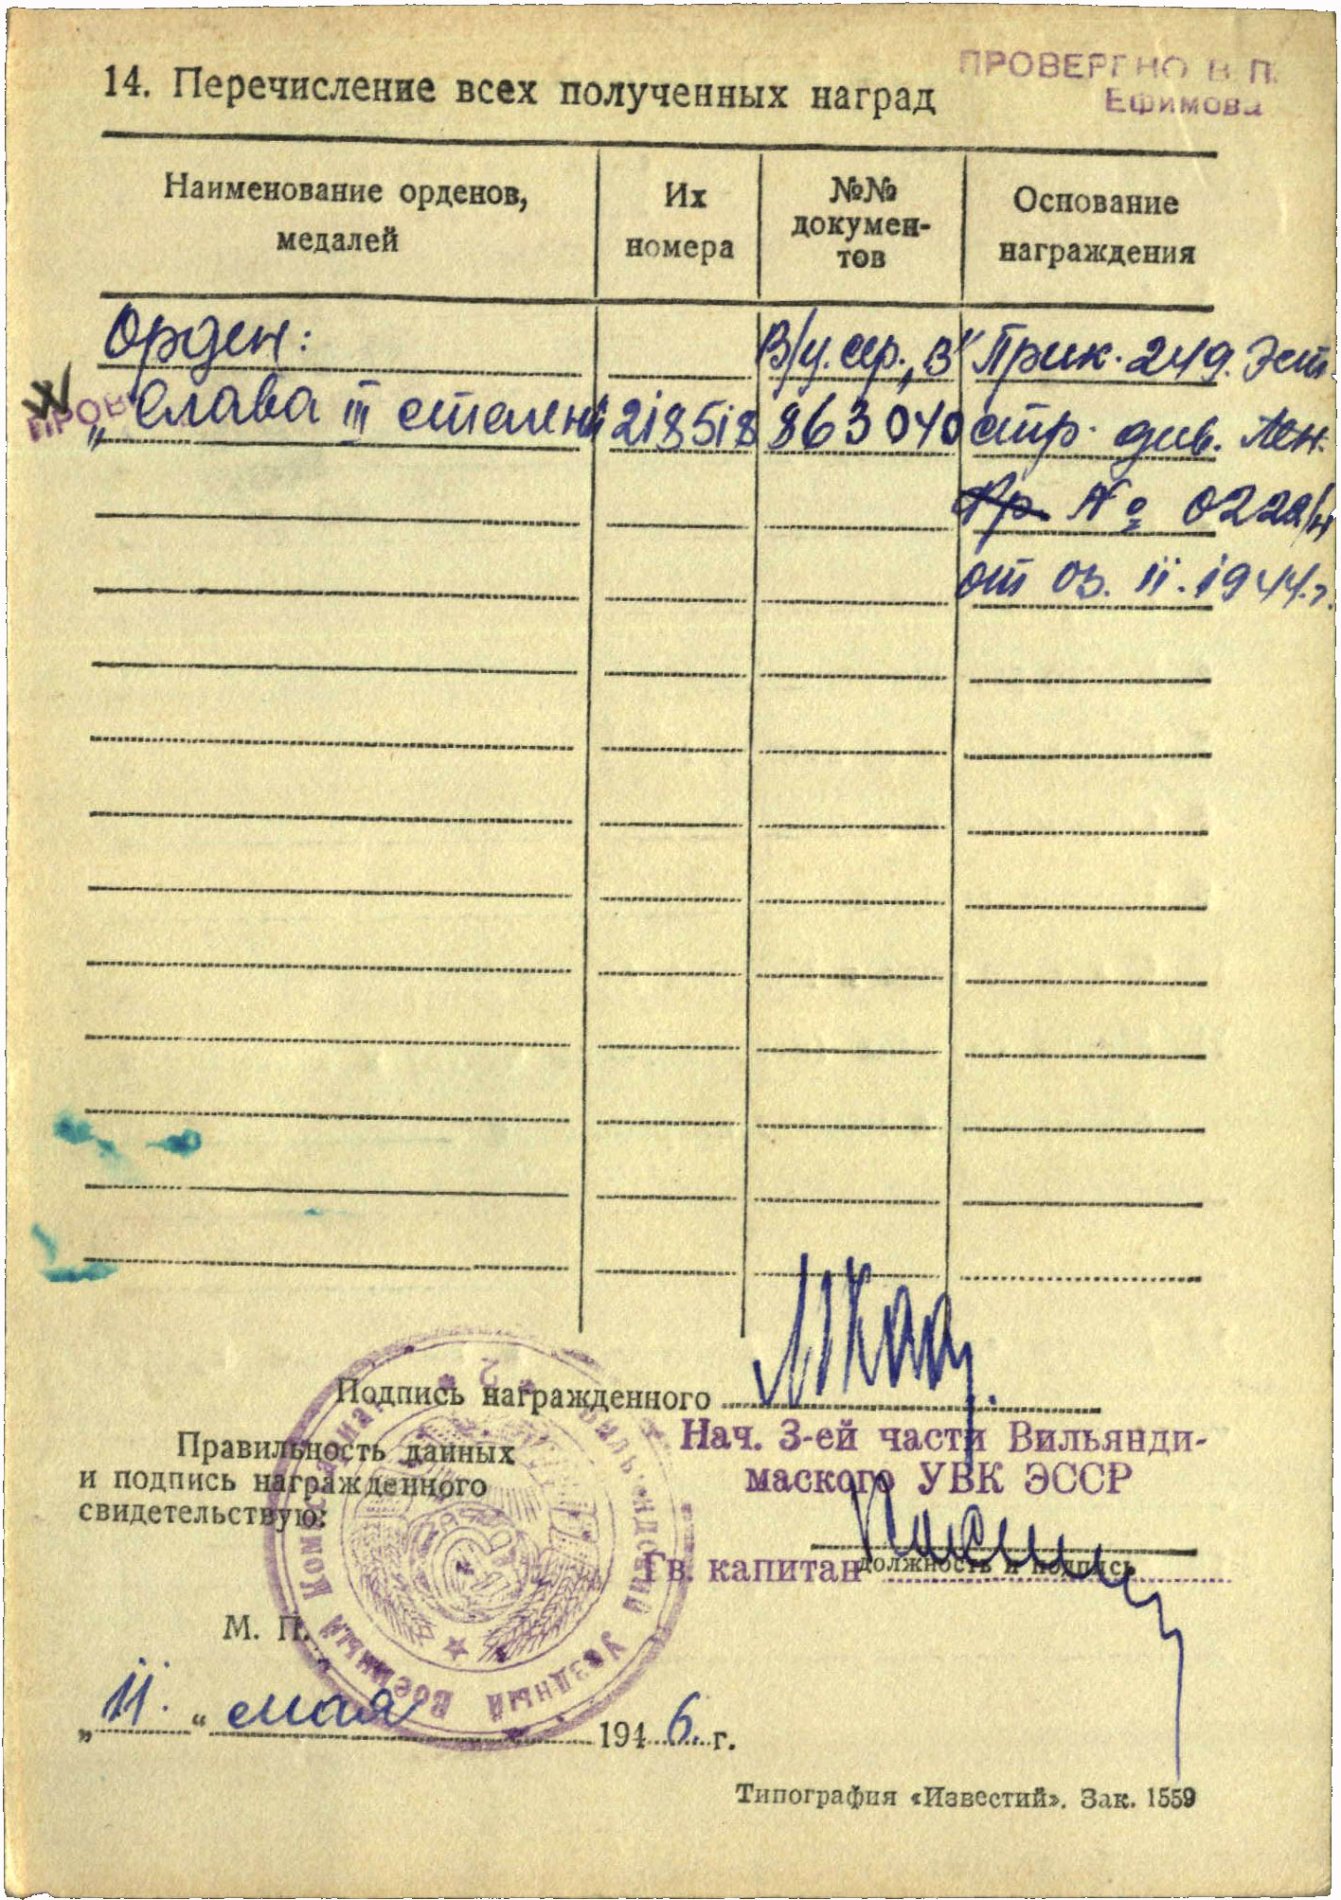 ПРОВЕРЕНО В П.
Ефимова
14. Перечисление всех полученных наград
Наименование орденов, медалей
Их номера
№№ докумен-тов
Основание награждения
Орден:
В/у. сер. „В"
Прик. 249. Эст.
ПРОВ
„Слава III степени
218518
863040
стр. див. Лен.
Пр. № 022а/н
от 03. 11. 1944.г.
Подпись награжденного
Правильность данных
и подпись награжденного
свидетельствую:
Нач. 3-ей части Вильянди-
маского УВК ЭССР
Гв. капитан
должность и подпись
М. П.
Уездный Военный
„11." мая 1946. г.
Типография «Известий». Зак. 1559